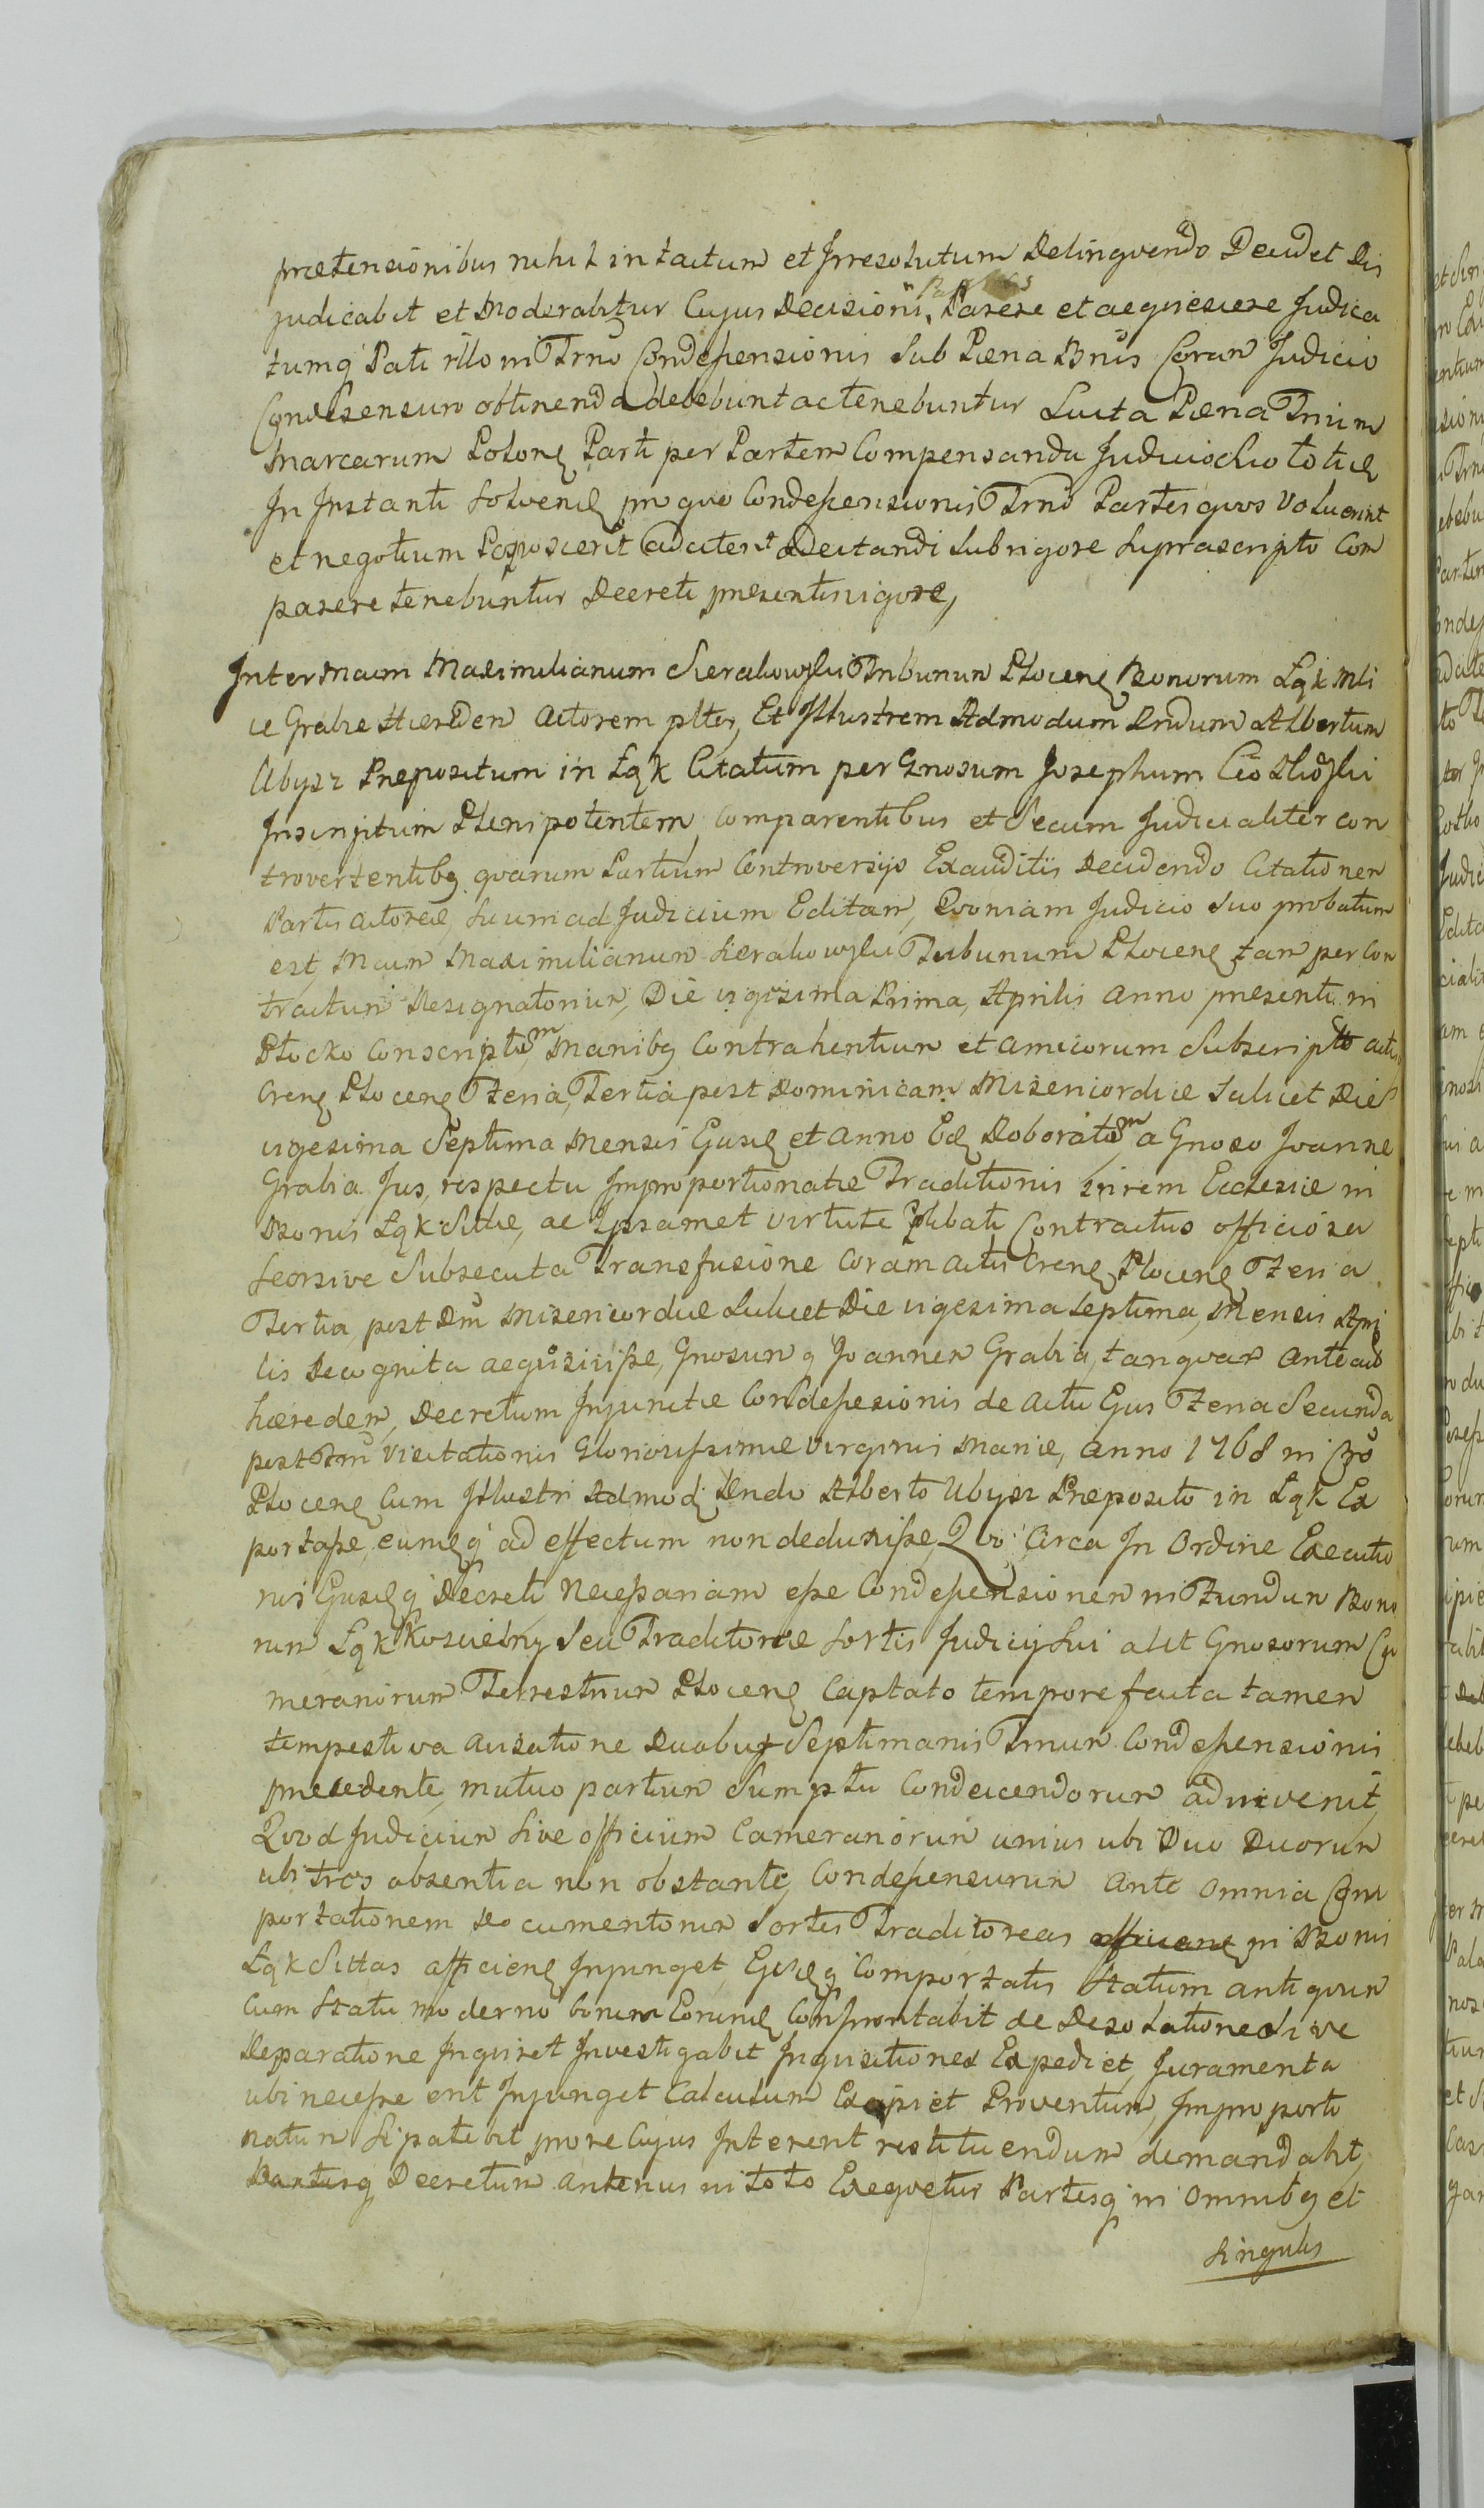 prætensionibus nihil intactum et Irresolutum Delinqvendo Decidet Dis
judicabit et Moderabitur Cujus Decisioni Parere et acqviescere Judica
tumq Pati illo in Trno Condescensionis Sub Pæna Bnis Coram Judicio
Condescensuro obtinenda debebunt ac tenebuntur Lucta Pæna Trium
Marcarum Polon Parti per Partem Compensanda Judicioqvo toties
In Instanti Solven pro qvo Condescensionis Trno Partes qvos Voluerint
et negotium Poposcerit ad citent Adcitandi Sub rigore Suprascripto Com
parere tenebuntur Decreti præsentis vigore,
Inter Mcum Maximilianum Sierakowski Tribunum Plocen Bonorum Łąk Mli
ie Grabie Hæredem Actorem plter, Et Illustrem Admodum Rndum Albertum
Ubysz Præpositum in Łąk Citatum per Gnosum Josephum
Inscriptum Plenipotentem, Comparentibus et Secum Judicialiter con
trovertentibq qvarum Partium Controversijs Exauditis Decidendo Citationem
Partis Actoreæ, Suum ad Judicium Editam, Qvoniam Judicio Suo probatum
est, Mcum Maximilianum Sierakowski Tribunum Plocen tam per Con
tractum Resignatorium, Die vigesima Prima, Aprilis Anno præsenti in
Płocko Conscriptum Manibq Contrahentium et Amicorum Subscripto actis
Cren Plocen Feria Tertia post Dominicam Misericordiæ Scilicet Die
vigesima Septima Mensis Ejusd et Anno Eod Roboratum a Gnoso Joanne
Grabia Jus, respectu Improportionatæ Traditionis in rem Ecclesiæ in
Bonis Łąk Sittæ, ac Ipsamet virtute plibati Contractus officiosa
Seorsive Subsecuta Transfusione Coram Actis Cren Plocen Feria
Tertia, post Dm Misericordiæ Scilicet Die vigesima Septima, Mensis Apri
lis Recognita acqvisivisse, Gnosum q Joannem Grabia, tanqvam Antead
hæredem, Decretum Injunctæ Condescensionis de Actu Ejus Feria Secunda
post Fm Visitationis Gloriosissimæ Virginis Mariæ, Anno 1768 in Cro
Plocen Cum Illustri Admod Rndo Alberto Ubysz Præposito in Łąk Ex
portasse, eumq ad effectum non deduxisse, Qvo Circa In Ordine Executio
nis Ejusdq Decreti Necessariam esse Condescensionem in Fundum Bono
rum Łąk Koscielny Seu Traditoriæ Sortis Judicij Sui alit Gnosorum Ca
merariorum Terrestrium Plocen Captato tempore facta tamen
tempestiva avisatione Duabus Septimanis Trnum Condescensionis
præcedente, mutuo partium Sumptu Condeicendorum adinvenit,
Qvod Judicium Sive officium Camerariorum unius ubi Duo Duorum
ubi tres absentia non obstante, Condescensurum Ante Omnia Com
portationem Documentorum Sortis Traditoreas in Bonis
Łąk Sittas afficien Injunget, Ejsdq Comportatis Statum antiqvum
Cum Statu moderno bonorum Eorund Confrontabit de Desolatione Sive
Reparatione Inqviret Investigabit Inqvisitiones Expediet, Juramenta
ubi necesse erit Injunget Calculum Excipiet Proventum, Improportio
natum Si patebit pro re Cujus Intererit restituendum demandabit,
Partisq Decretum Anterius in toto Exeqvetur Partesq in Omnibq et
Singulis